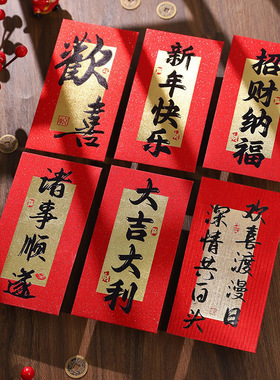 歡喜
新年快乐
招财纳福
诸事顺遂
大吉大利
欢喜渡漫日
深情共白头